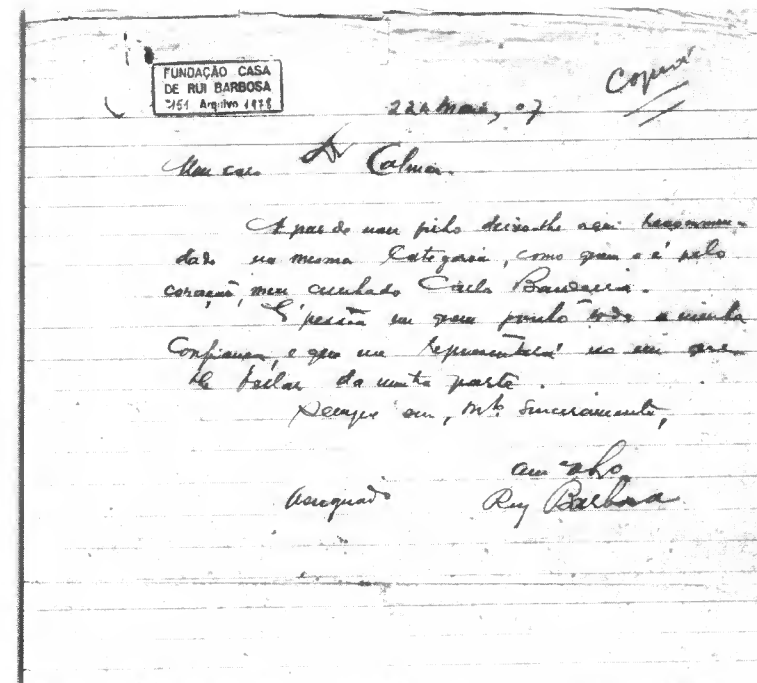 Copia
FUNDAÇÃO CASA
DE RUI BARBOSA
Arquivo 1978
22 Maio, 07
Meu caro Dr Calmon.
A par de meu filho deixo-lhe aqui recommen-
dado na mesma categoria, como quem o é pelo
coração, meu cunhado Carlos Bandeira.
É pessoa em quem ponho toda a minha
confiança, e que me representará no em que
lhe fallar da minha parte.
Sempre seu, mto sinceramente,
am
Ruy Barbosa